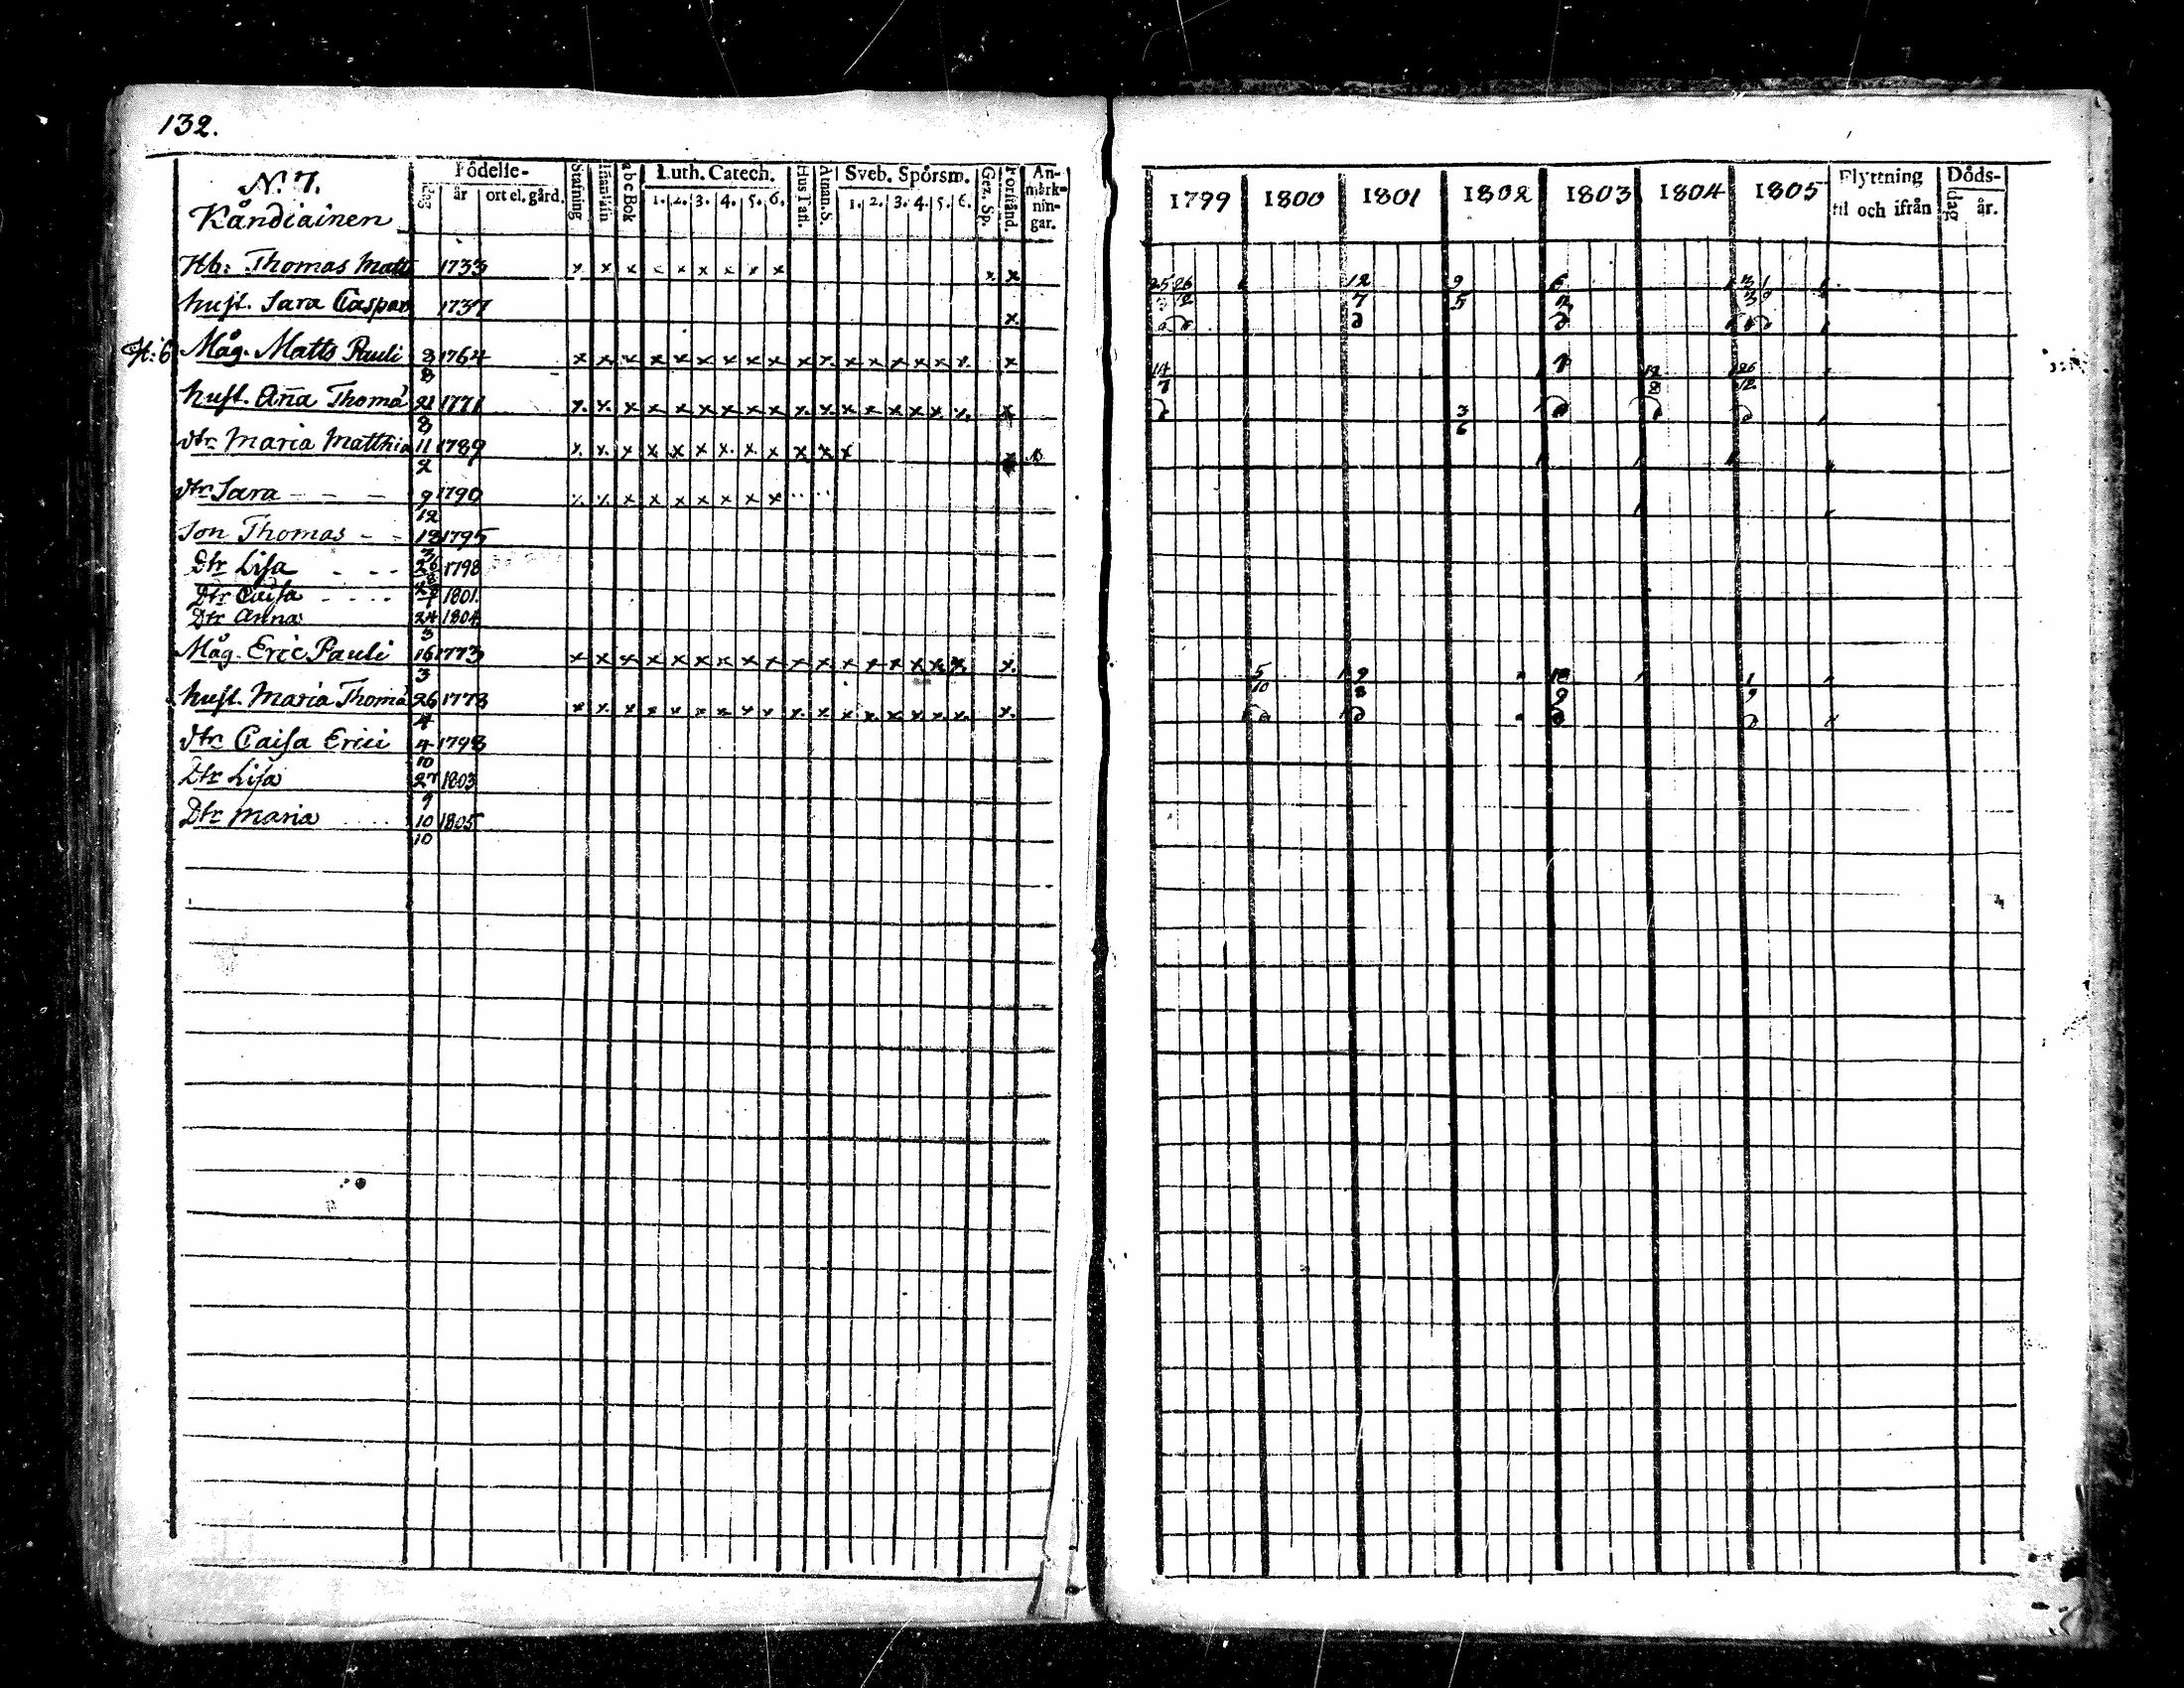 132.
N. 7.
Kåndiainen
Födelse-
dag år ort el. gård.
Stafning
Innanläs
abc Bok
Luth. Catech.
1. 2. 3. 4. 5. 6.
Hus Tafl.
Athan. S.
Sveb. Spörsm.
1. 2. 3. 4. 5. 6.
Gez. Sp.
Förstånd.
An-
märk-
nin-
gar.
1799 1800 1801 1802 1803 1804 1805
Flyttning
til och ifrån
Döds-
dag år.
Hb: Thomas Matts 1733 x x x x x x x x x x x
25 26 12 9 6 21
3 12 7 5 3
hust. Sara Caspar 1737 x
H: 6 Måg. Matts Pauli 3 1764 x x x x x x x x x x x x x x x x x x
8
14 12 26
7 8 12
hust. Aña Thoma 21 1771 x x x x x x x x x x x x x x x x x x
8
3
6
dtr Maria Matthia 11 1789 x x x x x x x x x x x x x
2
dtr Sara - - - 9 1790 x x x x x x x x x
12
Son Thomas - - 12 1795
3
Dtr Lisa - - - 26 1798
8
Dtr Caisa - - - - 1801.
Dtr Anna 24 1804
3
Måg. Eric Pauli 16 1773 x x x x x x x x x x x x x x x x x x
3
5 9 18 1
10 8 9 9
hust. Maria Thoma 26 1773 x x x x x x x x x x x x x x x x x x
4
dtr Caisa Erici 4 1798
10
Dtr Lisa 27 1803
9
Dtr Maria .... 10 1805
10